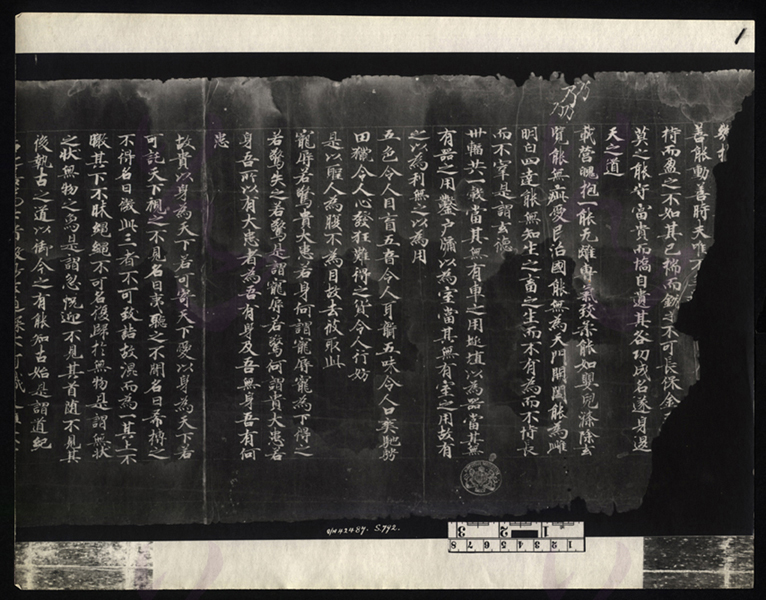 善能動善時夫唯不
持而盈之不如其已揣而銳之不可長保金
莫之能守富貴而憍自遺其咎功成名遂身退
天之道
載營魄抱一能无離專氣致柔能如嬰兒滌除玄
覽能無疵愛民治國能無為天門開闔能為雌
明白四達能無知生之畜之生而不有為而不恃長
而不宰是謂玄德
卅輻共一轂當其無有車之用埏埴以為器當其無
有器之用鑿戶牖以為室當其無有室之用故有
之以為利無之以為用
五色令人目盲五音令人耳聾五味令人口爽馳騁
田獵令人心發狂難得之貨令人行妨
是以聖人為腹不為目故去彼取此
寵辱若驚貴大患若身何謂寵辱寵為下得之
若驚失之若驚是謂寵辱若驚何謂貴大患若
身吾所以有大患者為吾有身及吾無身吾有何
患
故貴以身為天下若可寄天下愛以身為天下若
可託天下視之不見名曰夷聽之不聞名曰希搏之
不得名曰微此三者不可致詰故混而為一其上不
皦其下不昧繩繩不可名復歸於無物是謂無狀
之狀無物之象是謂忽恍迎不見其首隨不見其
後執古之道以御今之有能知古始是謂道紀
Or.8210 S.792.
1
3 2 1
8 7 6 5 4 3 2 1